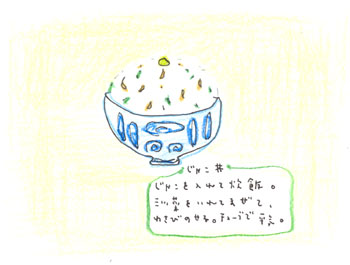 じゃこ丼
じゃこを入れて炊飯。
三ツ葉をいれてまぜて、
わさびのせる。チューブで